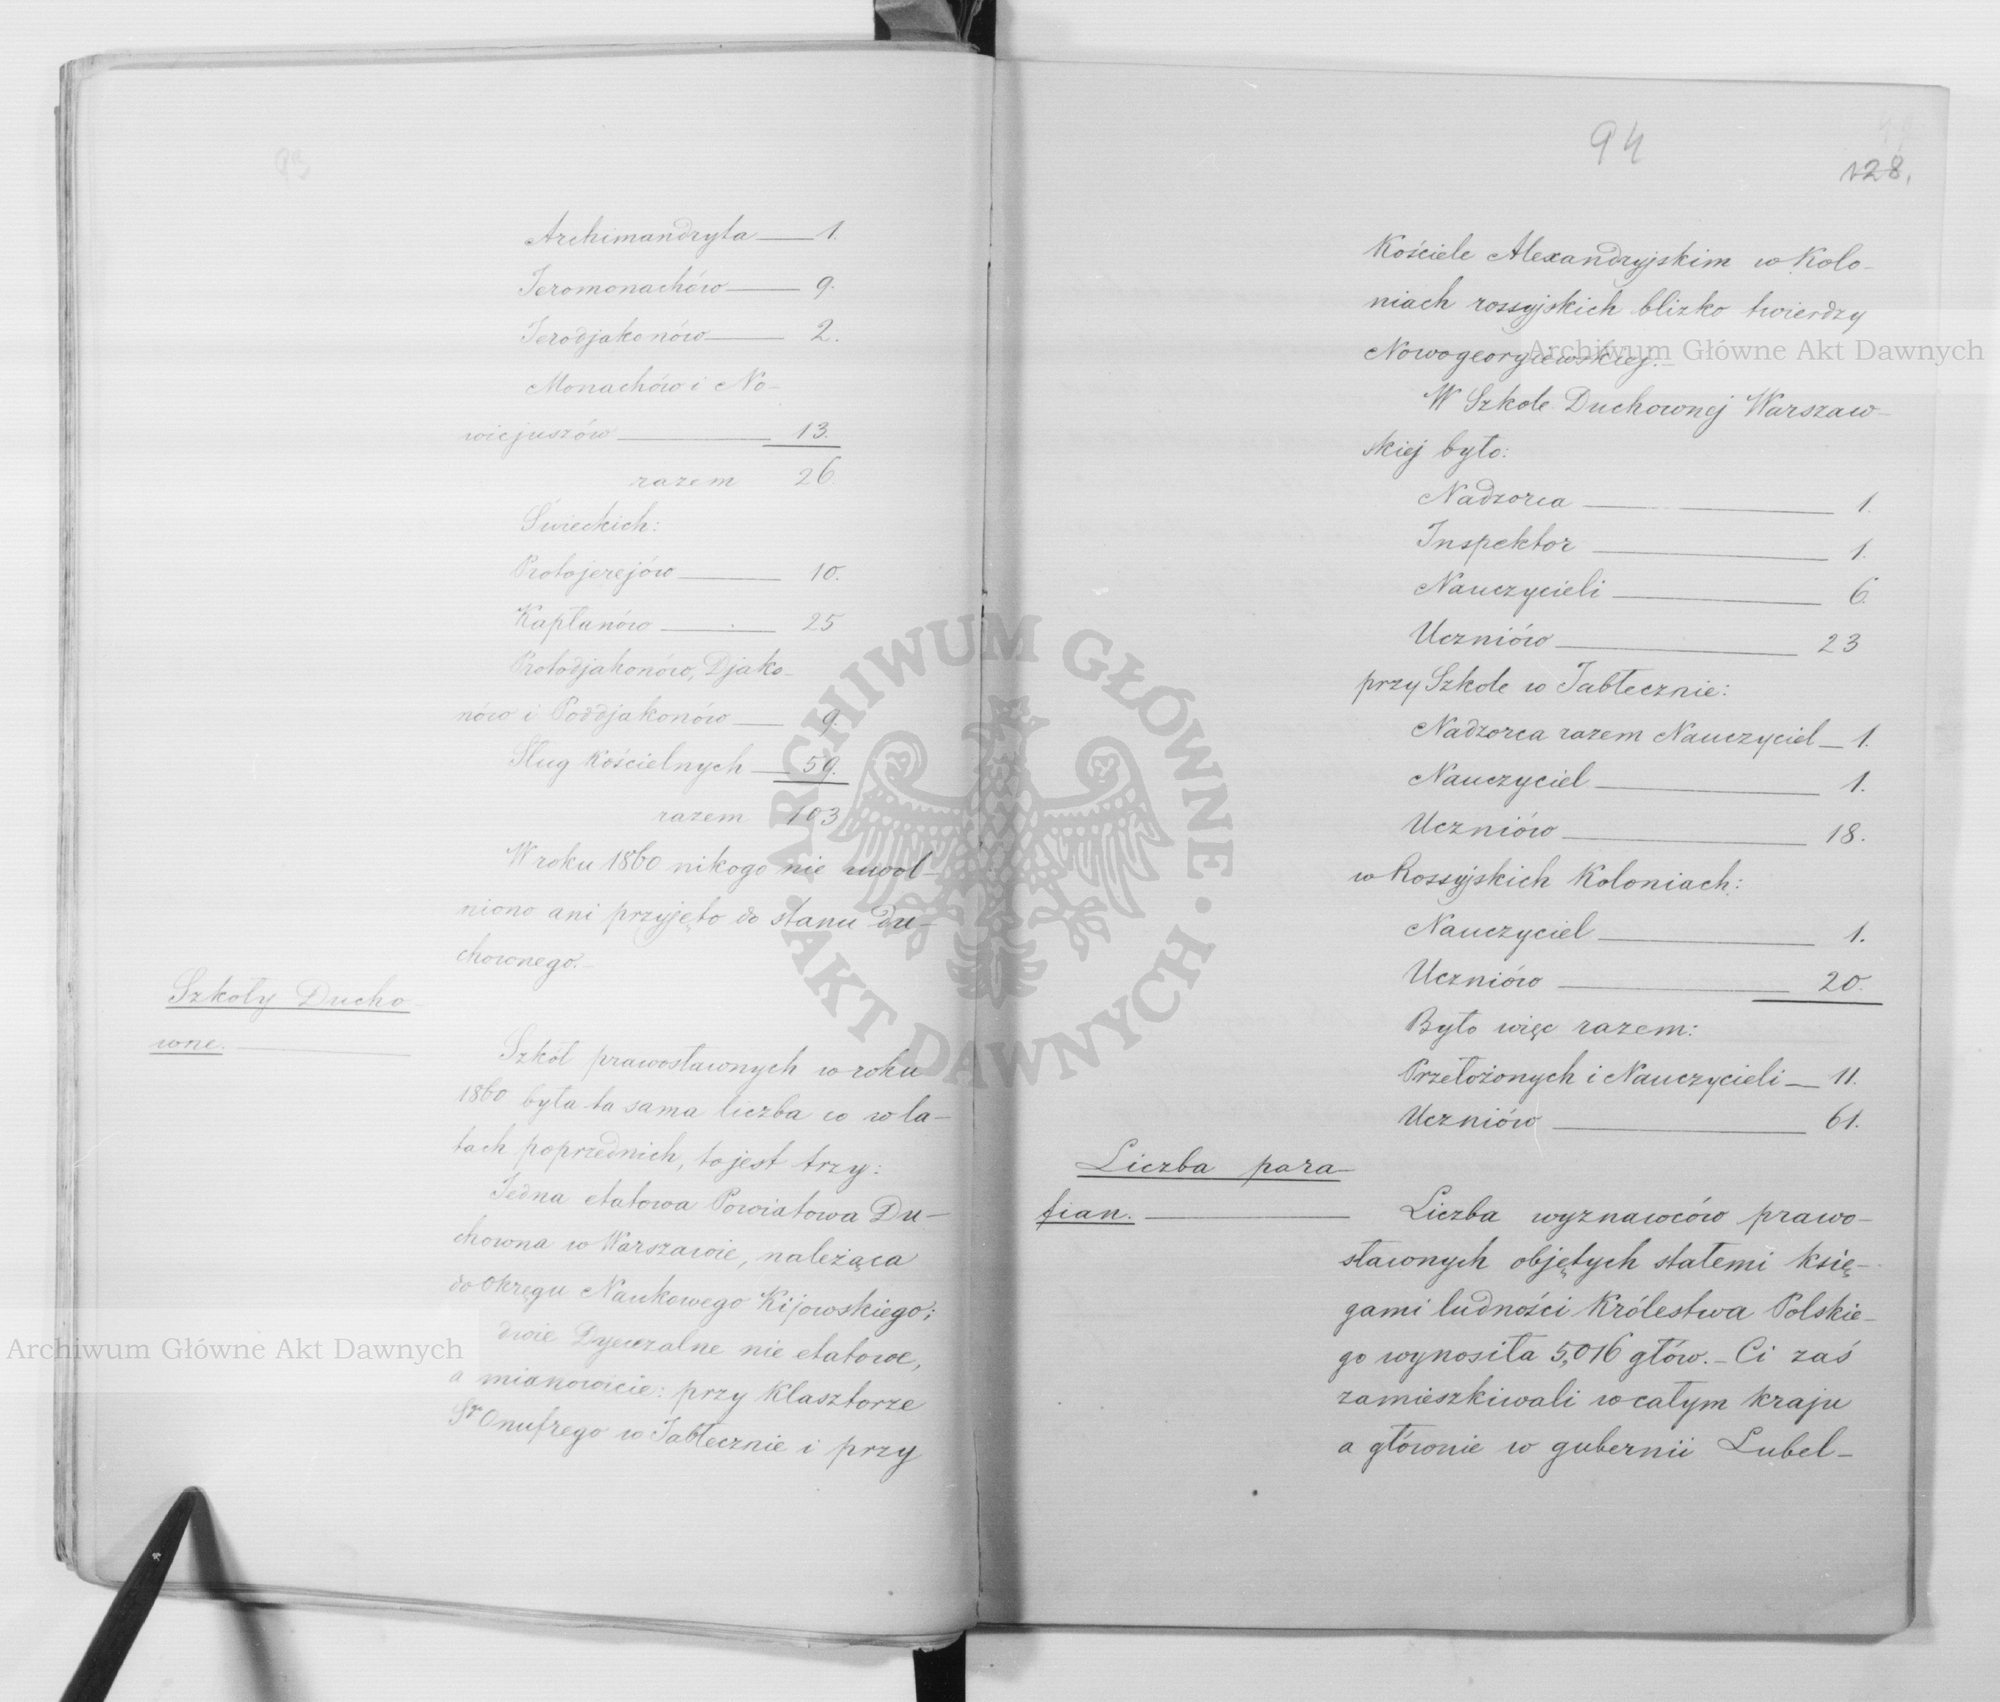 93
Archimandryta — 1.
Jeromonachów — 9.
Jerodjakonów — 2.
Monachów i No-
wicjuszów — 13.
razem 26.
Świeckich:
Protojerejów — 10.
Kapłanów — 25
Protodjakonów, Djako-
nów i Poddjakonów — 9.
Sług Kościelnych — 59.
razem 103
W roku 1860 nikogo nie uwol-
niono ani przyjęto do stanu Du-
chownego.–
Szkoły Ducho-
wne. —
Szkół prawosławnych w roku
1860 była ta sama liczba co w la-
tach poprzednich, to jest trzy:
Jedna etatowa Powiatowa Du-
chowna w Warszawie, należąca
do Okręgu Naukowego Kijowskiego;
dwie Dyecezalne nie etatowe,
a mianowicie: przy Klasztorze
Sgo Onufrego w Jabłecznie i przy
94
128.
Kościele Alexandryjskim w Kolo-
niach rossyjskich blizko twierdzy
Nowogeorgiewskiej.–
W Szkole Duchownej Warszaw-
skiej było:
Nadzorca — 1.
Inspektor — 1.
Nauczycieli — 6
Uczniów — 23
przy Szkole w Jabłecznie:
Nadzorca razem Nauczyciel — 1.
Nauczyciel — 1.
Uczniów — 18.
w Rossyjskich Koloniach:
Nauczyciel — 1.
Uczniów — 20.
Było więc razem:
Przełożonych i Nauczycieli — 11.
Uczniów — 61.
Liczba para-
fian. —
Liczba wyznawców prawo-
sławnych objętych stałemi księ-
gami ludności Królestwa Polskie-
go wynosiła 5,016 głów.– Ci zaś
zamieszkiwali w całym kraju
a głównie w gubernii Lubel-
Archiwum Główne Akt Dawnych
Archiwum Główne Akt Dawnych
ARCHIWUM GŁÓWNE
AKT DAWNYCH